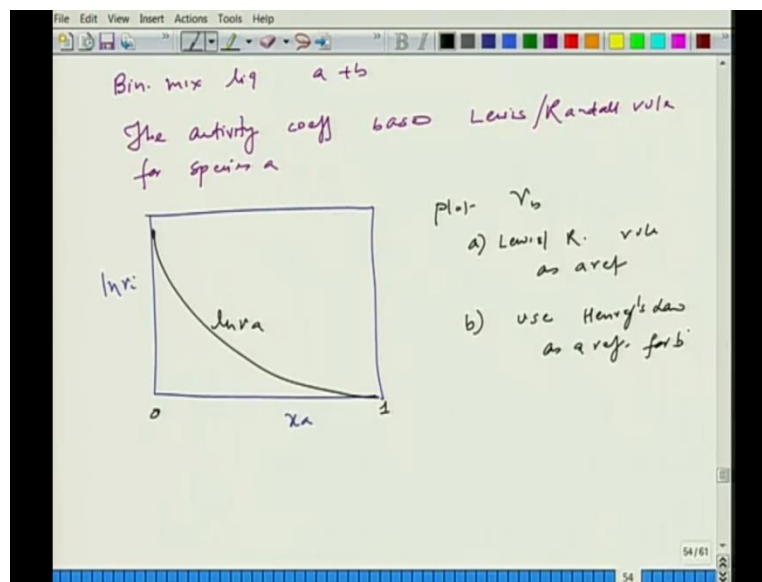 File Edit View Insert Actions Tools Help
Bin. mix liq a + b
The activity coeff based Lewis/Randall rule
for species a
plot γb
a) Lewis/ R. rule
as a ref
ln γi
ln γa
b) use Henry's Law
as a ref. for b
0
xa
1
54/61
54